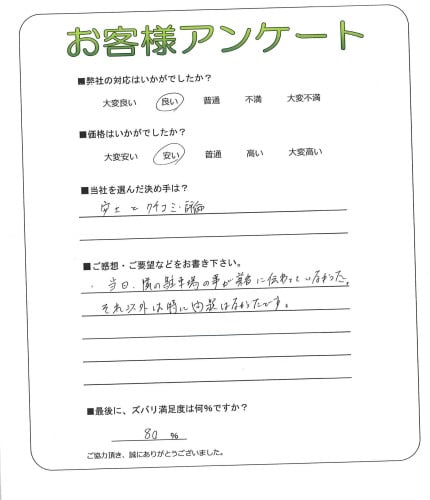 お客様アンケート
■弊社の対応はいかがでしたか？
大変良い 良い 普通 不満 大変不満
■価格はいかがでしたか？
大変安い 安い 普通 高い 大変高い
■当社を選んだ決め手は？
安さと クチコミ・評価
■ご感想・ご要望などをお書き下さい。
・当日、隣の駐車場の事が業者に伝わっていなかった。
それ以外は特に問題はなかったです。
■最後に、ズバリ満足度は何%ですか？
80 %
ご協力頂き、誠にありがとうございました。